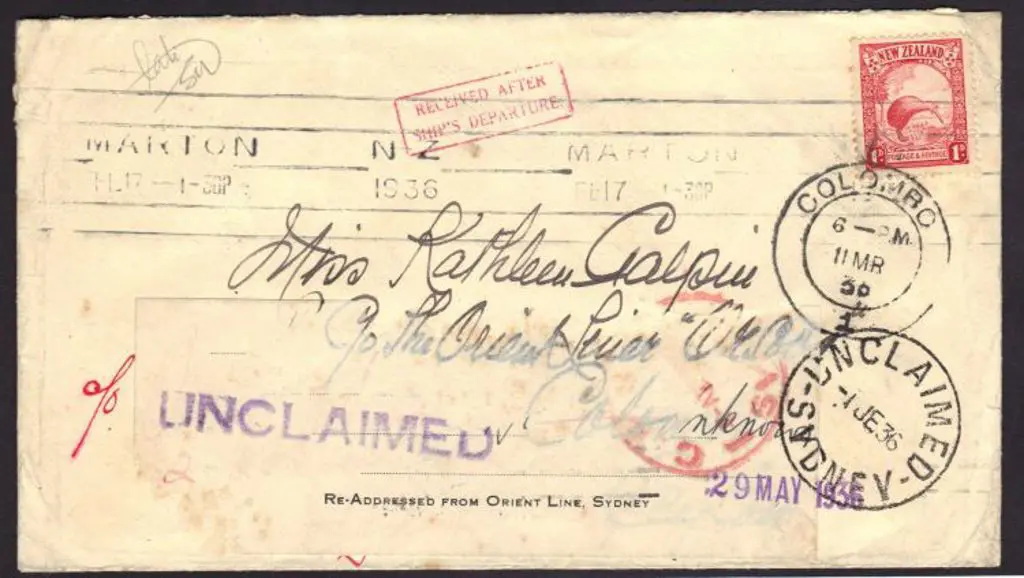 late
RECEIVED AFTER
SHIP'S DEPARTURE.
NEW ZEALAND
POSTAGE & REVENUE
1D 1D
MARTON N-Z MARTON
FE17 -1-30P 1936 FE17 1-30P
COLOMBO
6 - P.M.
11 MR
36
Miss Kathleen Galpin
C/o The Orient Liner "
UNCLAIMED
UNCLAIMED - SYDNEY -
-1 JE 36
29 MAY 1936
RE-ADDRESSED FROM ORIENT LINE, SYDNEY